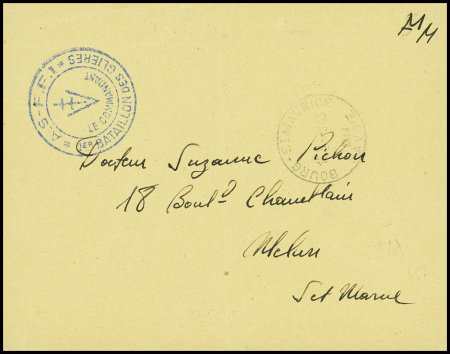 FM
A·S·F·F·I
1ER BATAILLON DES GLIERES
LE COMMANDANT
BOURG-ST-MAURICE
Docteur Suzanne Pichon
18 Boulᵈ Chamblain
Melun
S et Marne